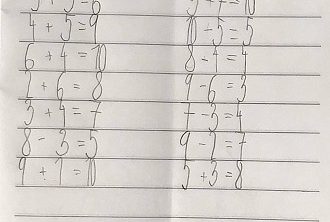 4 + 5 = 9
6 + 4 = 10
+ 6 = 8
3 + 4 = 7
8 - 3 = 5
9 + 1 = 10
= 10
10 - 5 = 5
8 - 4 = 4
9 - 6 = 3
7 - 3 = 4
9 - 2 = 7
5 + 3 = 8